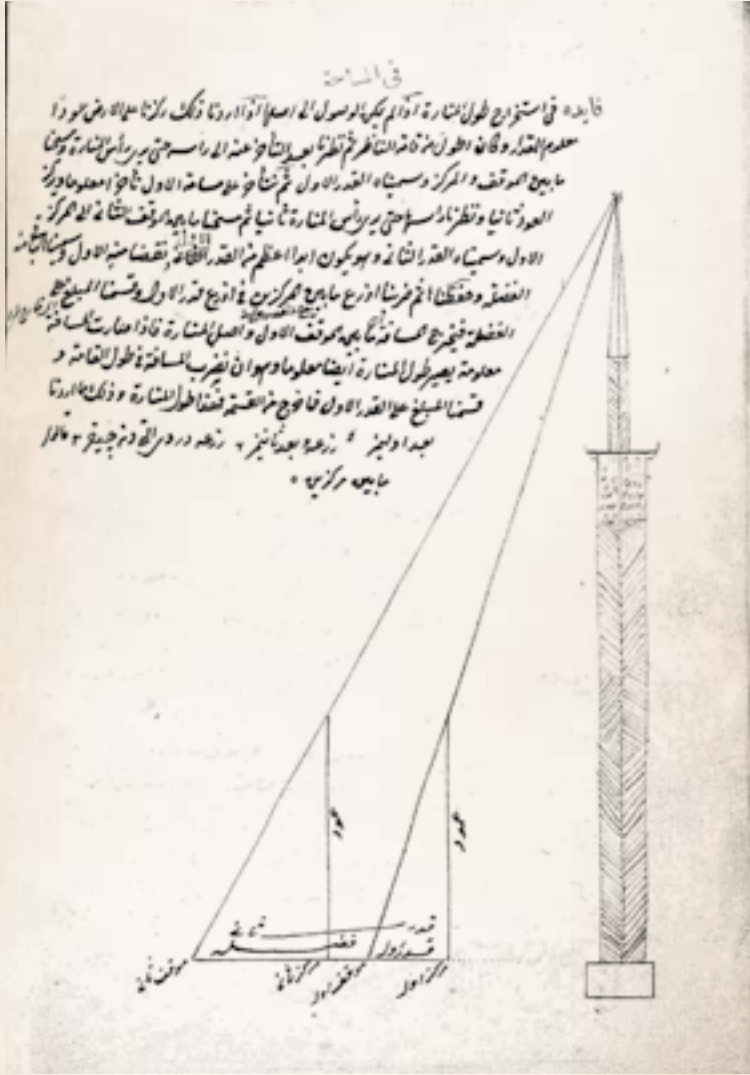 في المساحة
فايده في استخراج طول المنارة اذا لم يكن الوصول الى اصلها اذا اردنا ذلك ركزنا على الارض عمودا
معلوم المقدار وكان اطول من قامة الناظر ثم نظرنا بعد التأخر عنه الى راسه حتى يرى رأس المنارة ومسحنا
ما بين الموقف والمركز وسميناه القدر الاول ثم نتأخر على مسامتة الاول تأخرا معلوما ونركز
العمود ثانيا وننظر راسها حتى يرى رأس المنارة ثانيا ثم مسحنا ما بين الموقف الثاني الى المركز
الاول وسميناه القدر الثاني وهو يكون ابدا اعظم من القدر نقصنا منه الاول وسمينا
الفضلة وحفظنا ثم ضربنا اذرع ما بين المركزين في اذرع قدر الاول وقسمنا المبلغ على
الفضلة فيخرج المسافة ما بين موقف الاول واصل المنارة فاذا صارت المسافة
معلومة يصير طول المنارة ايضا معلوما وهو ان نضرب المسافة في طول القامة و
قسمنا المبلغ على القدر الاول فما خرج من القسمة فهو طول المنارة وذلك ما اردنا
ما بين مركزين
عمود
عمود
قدر ثاني
فضله قدر اول
موقف ثاني مركز ثاني موقف اول مركز اول